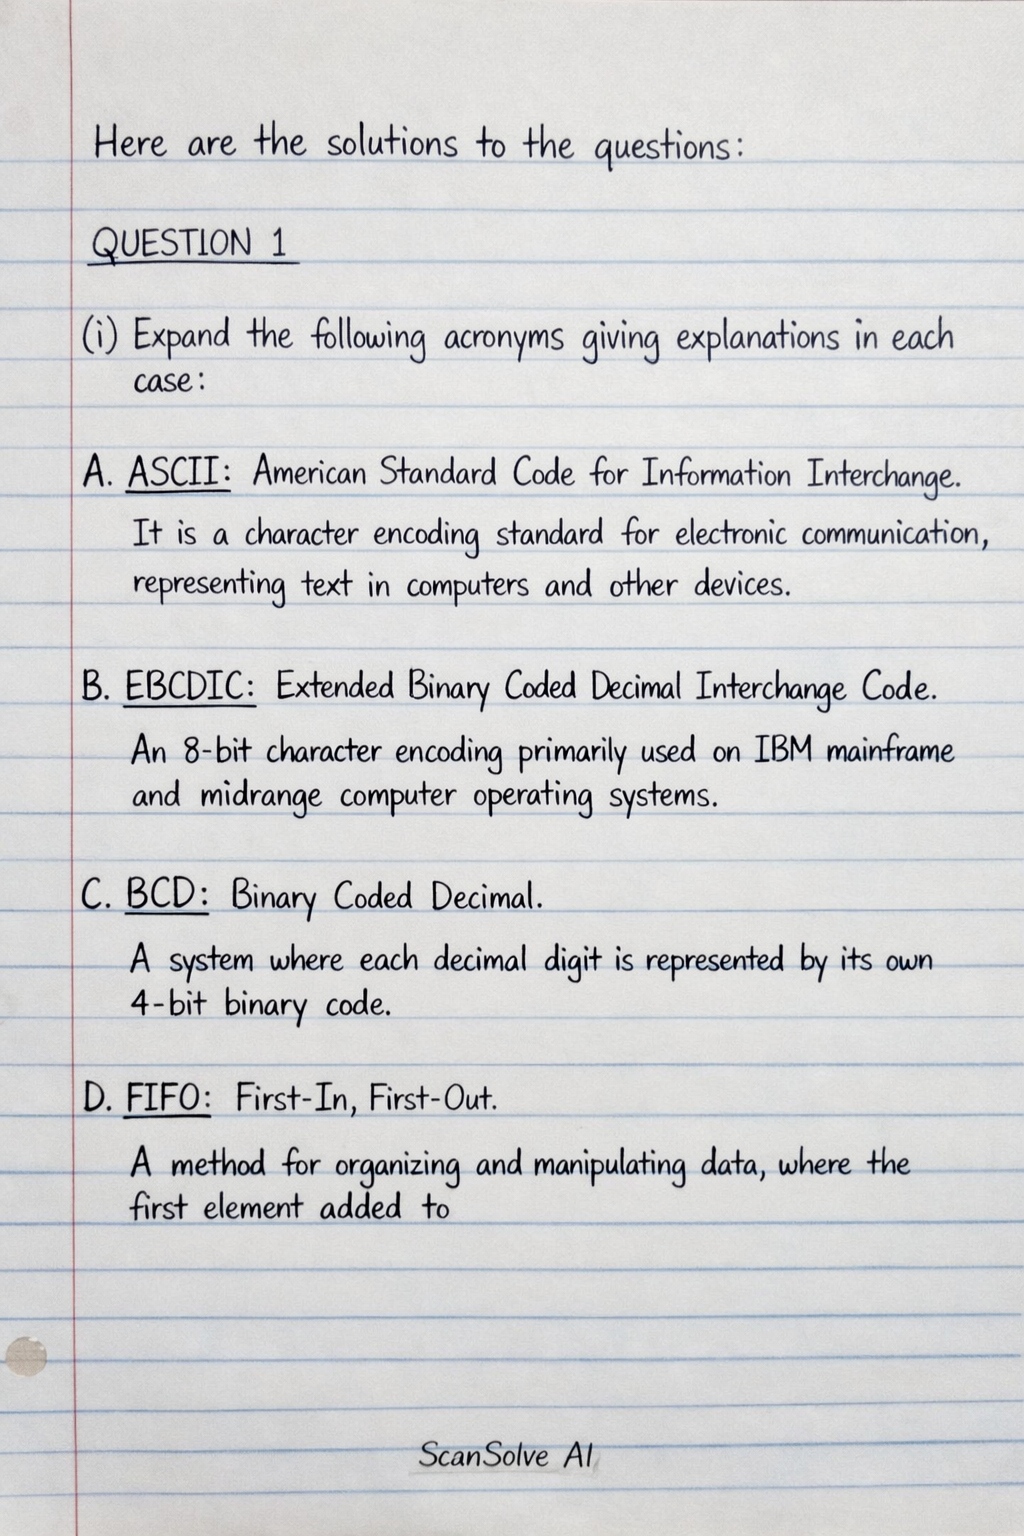 Here are the solutions to the questions:
QUESTION 1
(i) Expand the following acronyms giving explanations in each
case:
A. ASCII: American Standard Code for Information Interchange.
It is a character encoding standard for electronic communication,
representing text in computers and other devices.
B. EBCDIC: Extended Binary Coded Decimal Interchange Code.
An 8-bit character encoding primarily used on IBM mainframe
and midrange computer operating systems.
C. BCD: Binary Coded Decimal.
A system where each decimal digit is represented by its own
4-bit binary code.
D. FIFO: First-In, First-Out.
A method for organizing and manipulating data, where the
first element added to
ScanSolve AI